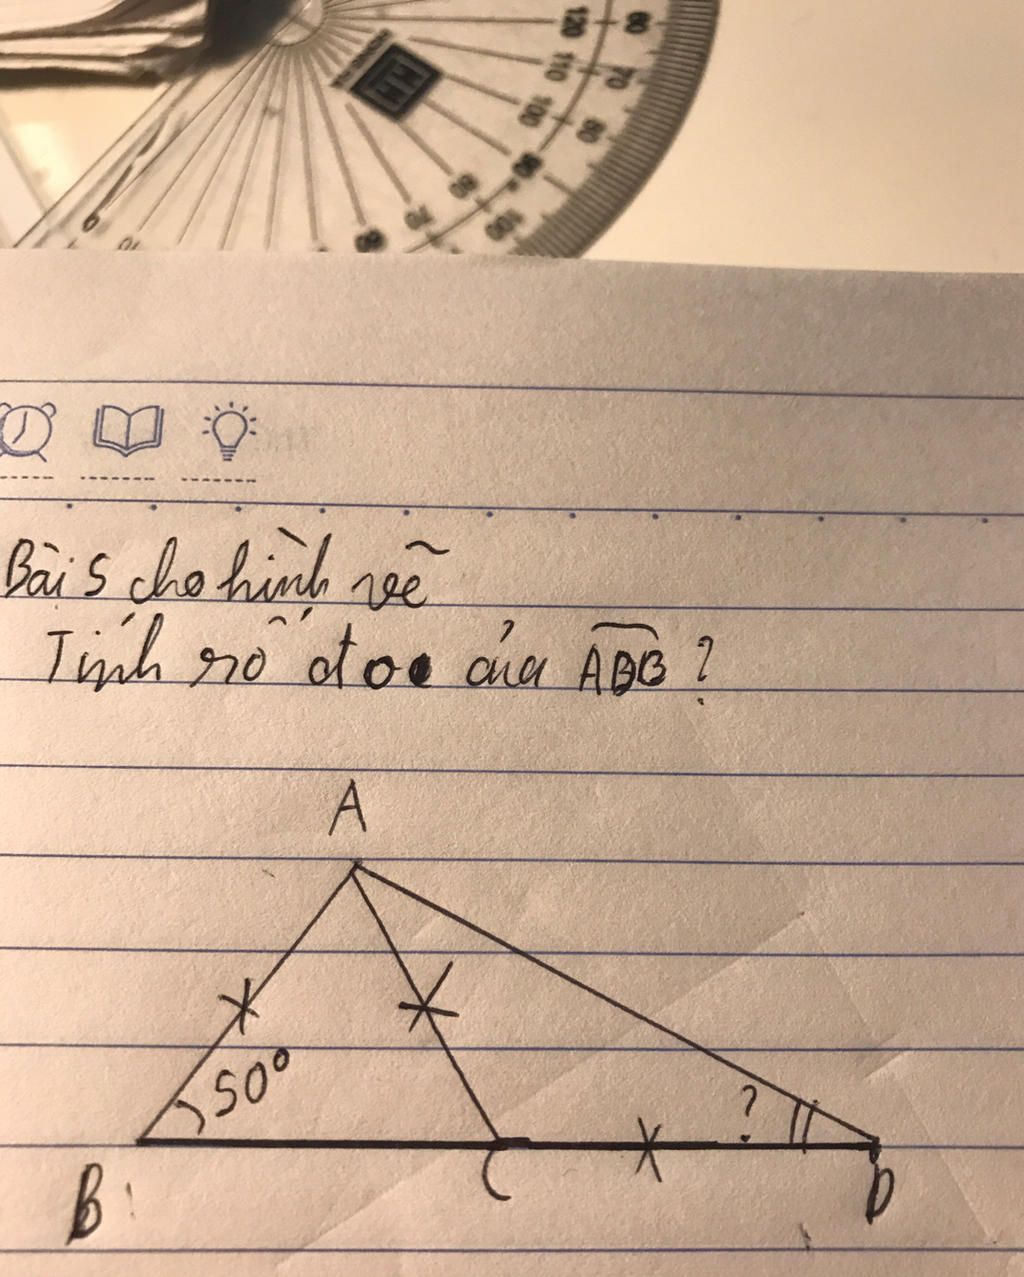 120
60
110
70
100
80
90
80
70
100
60
Bài 5 cho hình vẽ
Tính số đo của ADB ?
A
50°
?
B
C
D